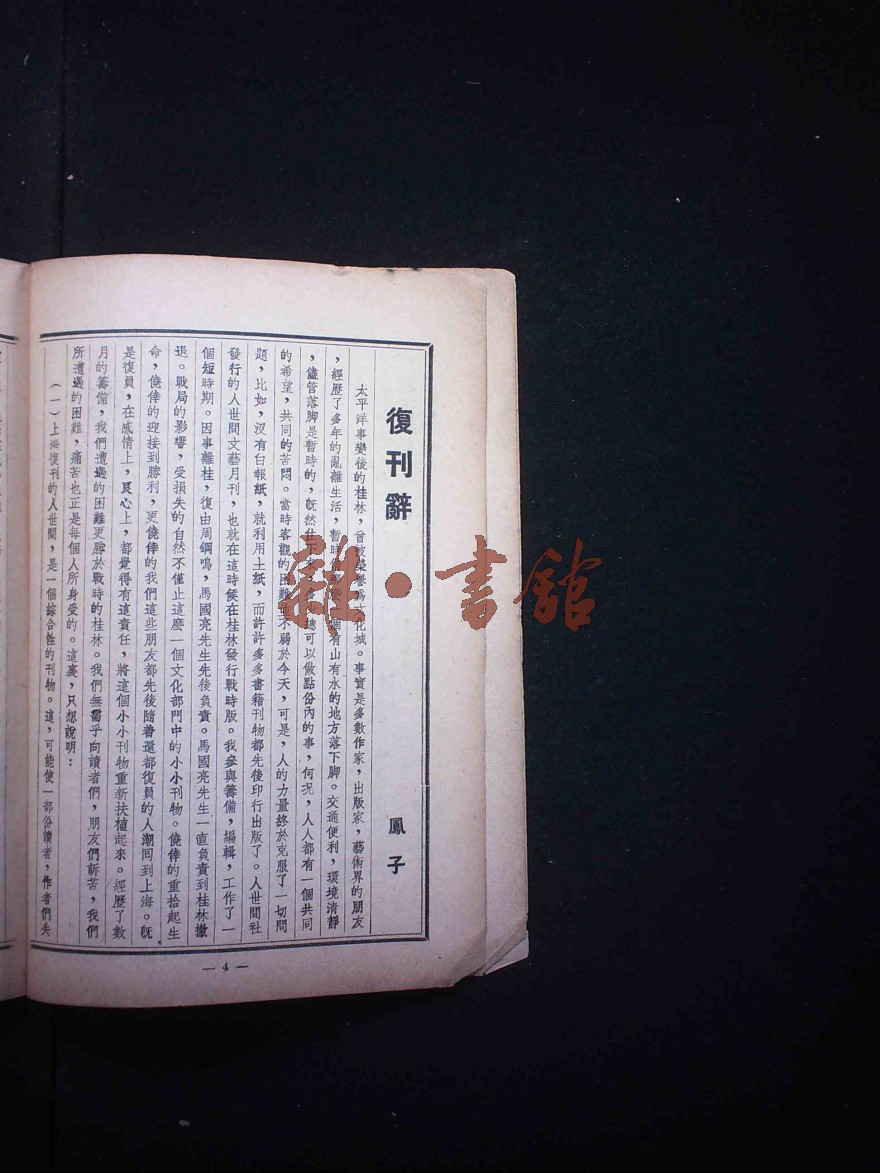 復刊辭
鳳子
太平洋事變後的桂林，曾被榮譽爲文化城。事實是多數作家，出版家，藝術界的朋友
，經歷了多年的亂離生活，暫時 有山有水的地方落下脚。交通便利，環境清靜
，儘管落脚是暫時的，既然住下來， 總可以做點份內的事，何況，人人都有一個共同
的希望，共同的苦悶。當時客觀的困難並不弱於今天，可是，人的力量終於克服了一切問
題，比如，沒有白報紙，就利用土紙，而許許多多書籍刊物都先後印行出版了。人世間社
發行的人世間文藝月刊，也就在這時候在桂林發行戰時版。我參與籌備，編輯，工作了一
個短時期。因事離桂，復由周鋼鳴，馬國亮先生先後負責。馬國亮先生一直負責到桂林撤
退。戰局的影響，受損失的自然不僅止這麽一個文化部門中的小小刊物。僥倖的重拾起生
命，僥倖的迎接到勝利，更僥倖的我們這些朋友都先後隨着還都復員的人潮囘到上海。既
是復員，在感情上，良心上，都覺得有這責任，將這個小小刊物重新扶植起來。經歷了數
月的籌備，我們遭遇的困難更勝於戰時的桂林。我們無需乎向讀者們，朋友們訴苦，我們
所遭遇的困難，痛苦也正是每個人所身受的。這裏，只想說明：
（一）上海復刊的人世間，是一個綜合性的刊物。這，可能使一部份讀者，作者們失
— 4 —
雜·書館